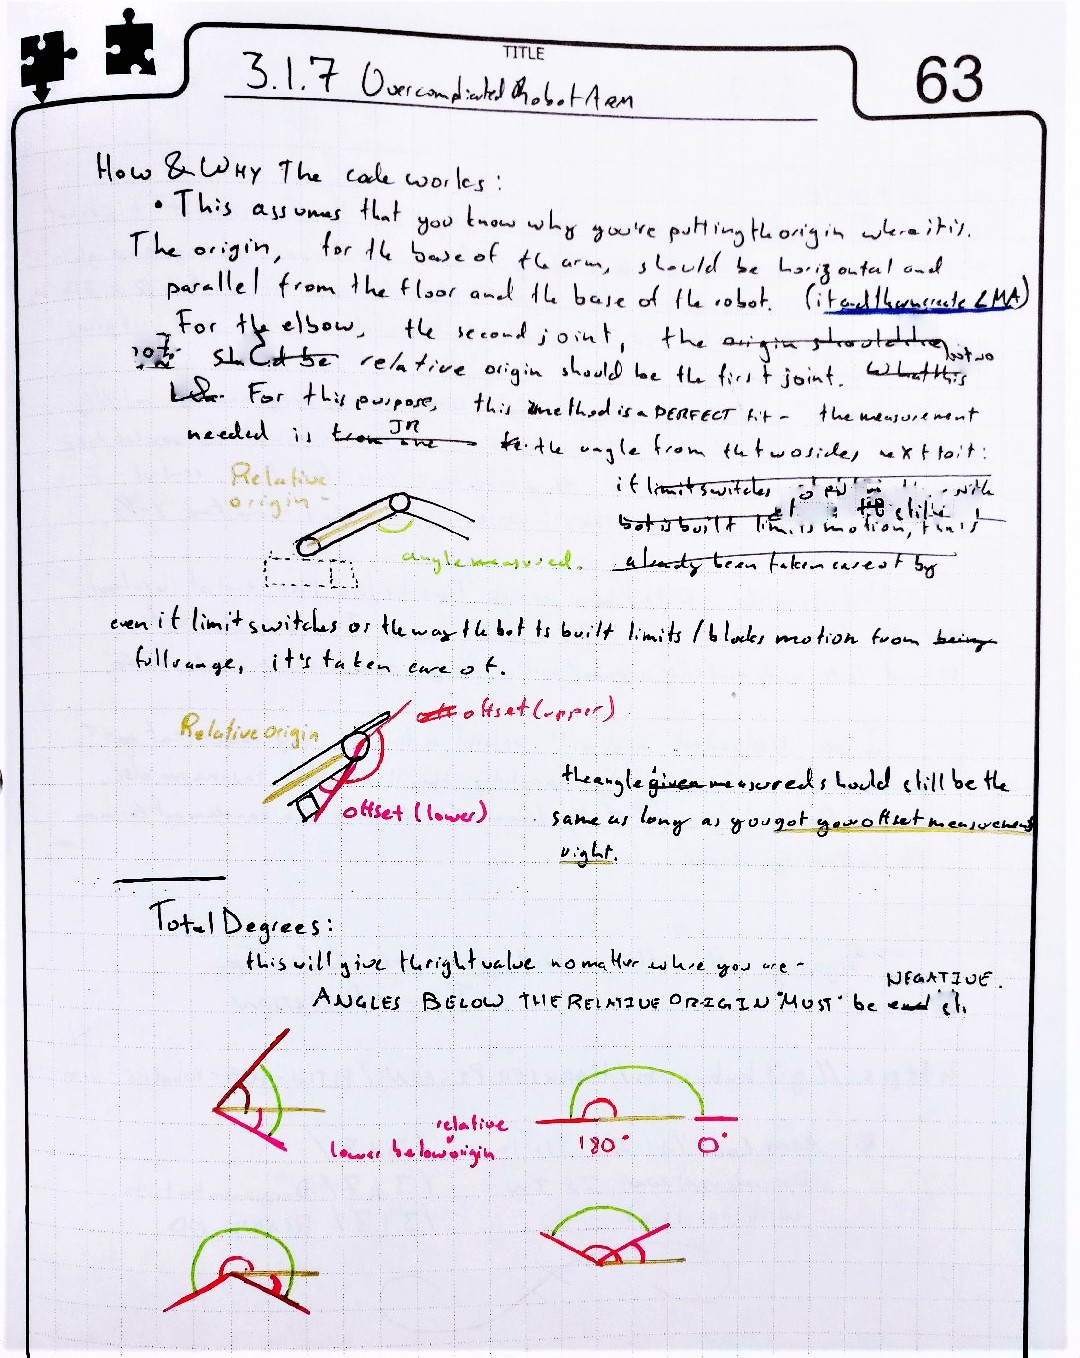 TITLE
63
3.1.7 Overcomplicated Robot ARM
How & WHY The code works:
• This assumes that you know why you're putting the origin where it is.
The origin, for the base of the arm, should be horizontal and
parallel from the floor and the base of the robot.
For the elbow, the second joint, the origin should be
should be relative origin should be the first joint. What this
For this purpose, this method is a PERFECT fit - the measurement
needed is the angle from the two sides next to it:
Relative
origin-
angle measured.
if limit switches
bot is built limits motion, this
already been taken care of by
even if limit switches or the way the bot is built limits / blocks motion from being
full range, it's taken care of.
offset (upper)
Relative origin
offset (lower)
the angle given measured should still be the
same as long as you got your offset measurement
right.
Total Degrees:
this will give the right value no matter where you are -
NEGATIVE.
ANGLES BELOW THE RELATIVE ORIGIN "MUST" be
relative
lower below origin
180° 0°